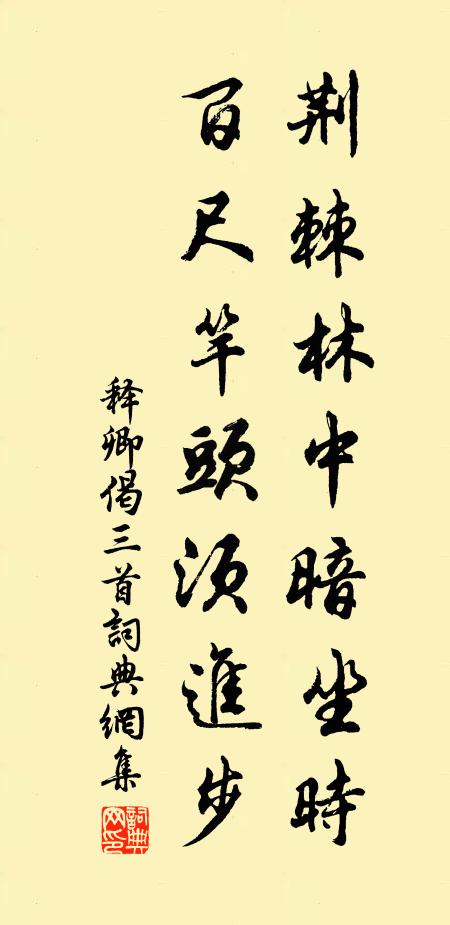 荆棘林中暗坐時
百尺竿頭須進步
释卿偈三首詞典網集
詞典
网印